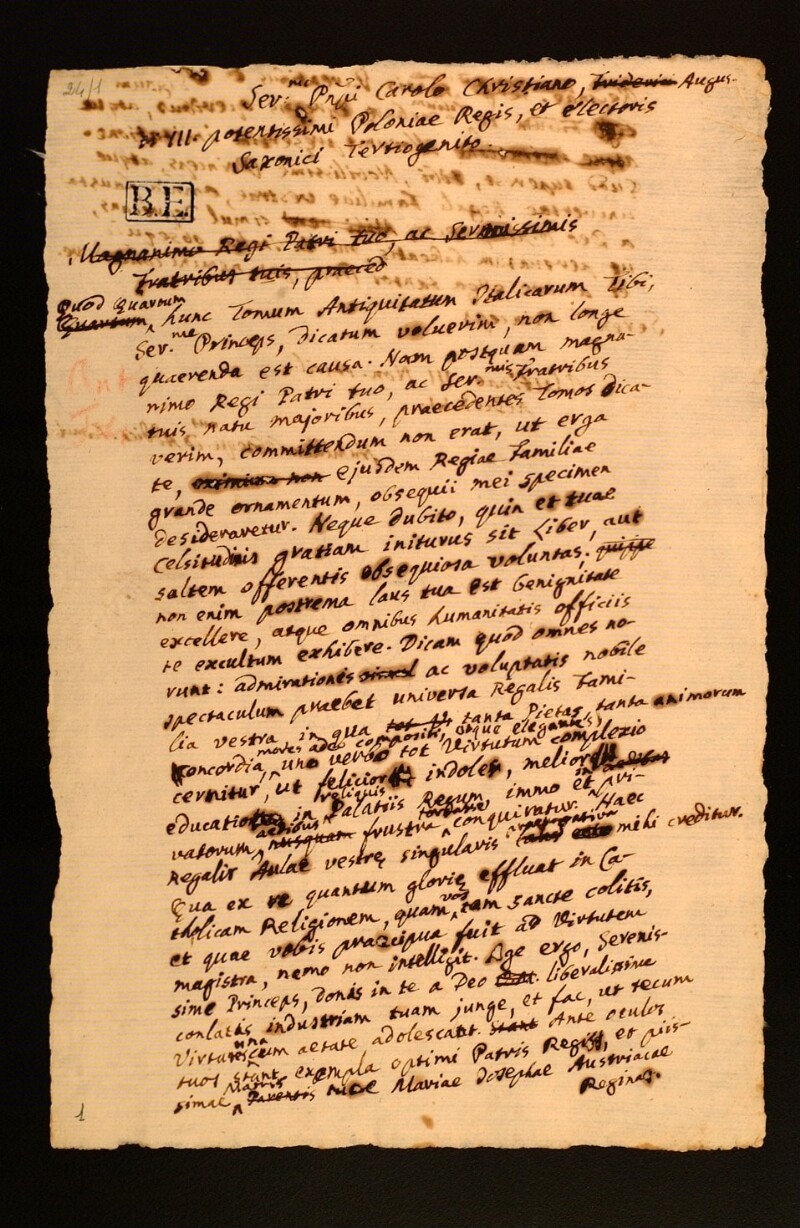 24/1
Ser.mo Pnpi Carolo Christiano, Friderici Augus-
ti III. potentissimi Poloniae Regis, et Electoris
Saxonici Tertiogenito
BE
Magnanimo Regi Patri tuo, ac Serenissimis
Fratribus tuis, praeced
Quod Quartum
Quartum hunc Tomum Antiquitatum Italicarum Tibi,
Ser.me Princeps, dicatum voluerim, non longe
quaerenda est causa. Nam postquam magna-
nimo Regi Patri tuo, ac Ser.mis Fratribus
tuis natu majoribus, praecedentes Tomos dica-
verim, committendum non erat, ut erga
te, eximium non ejusdem Regiae Familiae
grande ornamentum, obsequii mei specimen
desideraretur. Neque dubito, quin et tuae
Celsitudinis gratiam initurus sit Liber, aut
saltem offerentis obsequiosa voluntas; quippe
non enim postrema laus tua est benignitate
excellere, atque omnibus humanitatis officiis
te excultum exhibere. Dicam quod omnes no-
runt: admirationis simul ac voluptatis nobile
spectaculum praebet universa Regalis Fami-
lia vestra, in qua tanta Pietas, tanta animorum
mores adeo compositi, atque elegantes,
concordia, uno verbo tot Virtutum complexio
cernitur, ut felicior indoles, melior
reliquis in
educatio in Palatiis Regum, immo et pri-
aedibus fortasse
vatorum, nusquam frustra conquiratur. Haec
praerogativa
Regalis Aulae vestrę singularis mihi creditur.
Qua ex re quantum glorię effluat in Ca-
tholicam Religionem, quam vos tam sancte colitis,
et quae vobis praecipua fuit ad Virtutem
magistra, nemo non intelligit. Age ergo, Serenis-
sime Princeps, donis in te a Deo liberalissime
conlatis industriam tuam junge, et fac, ut tecum
una
Virtutes cum aetate adolescant. Stant Ante oculos
tuos stant exempla optimi Patris Regis, et piis-
Matris
simae Parentis tuae Mariae Josephae Austriacae
Reginae.
1